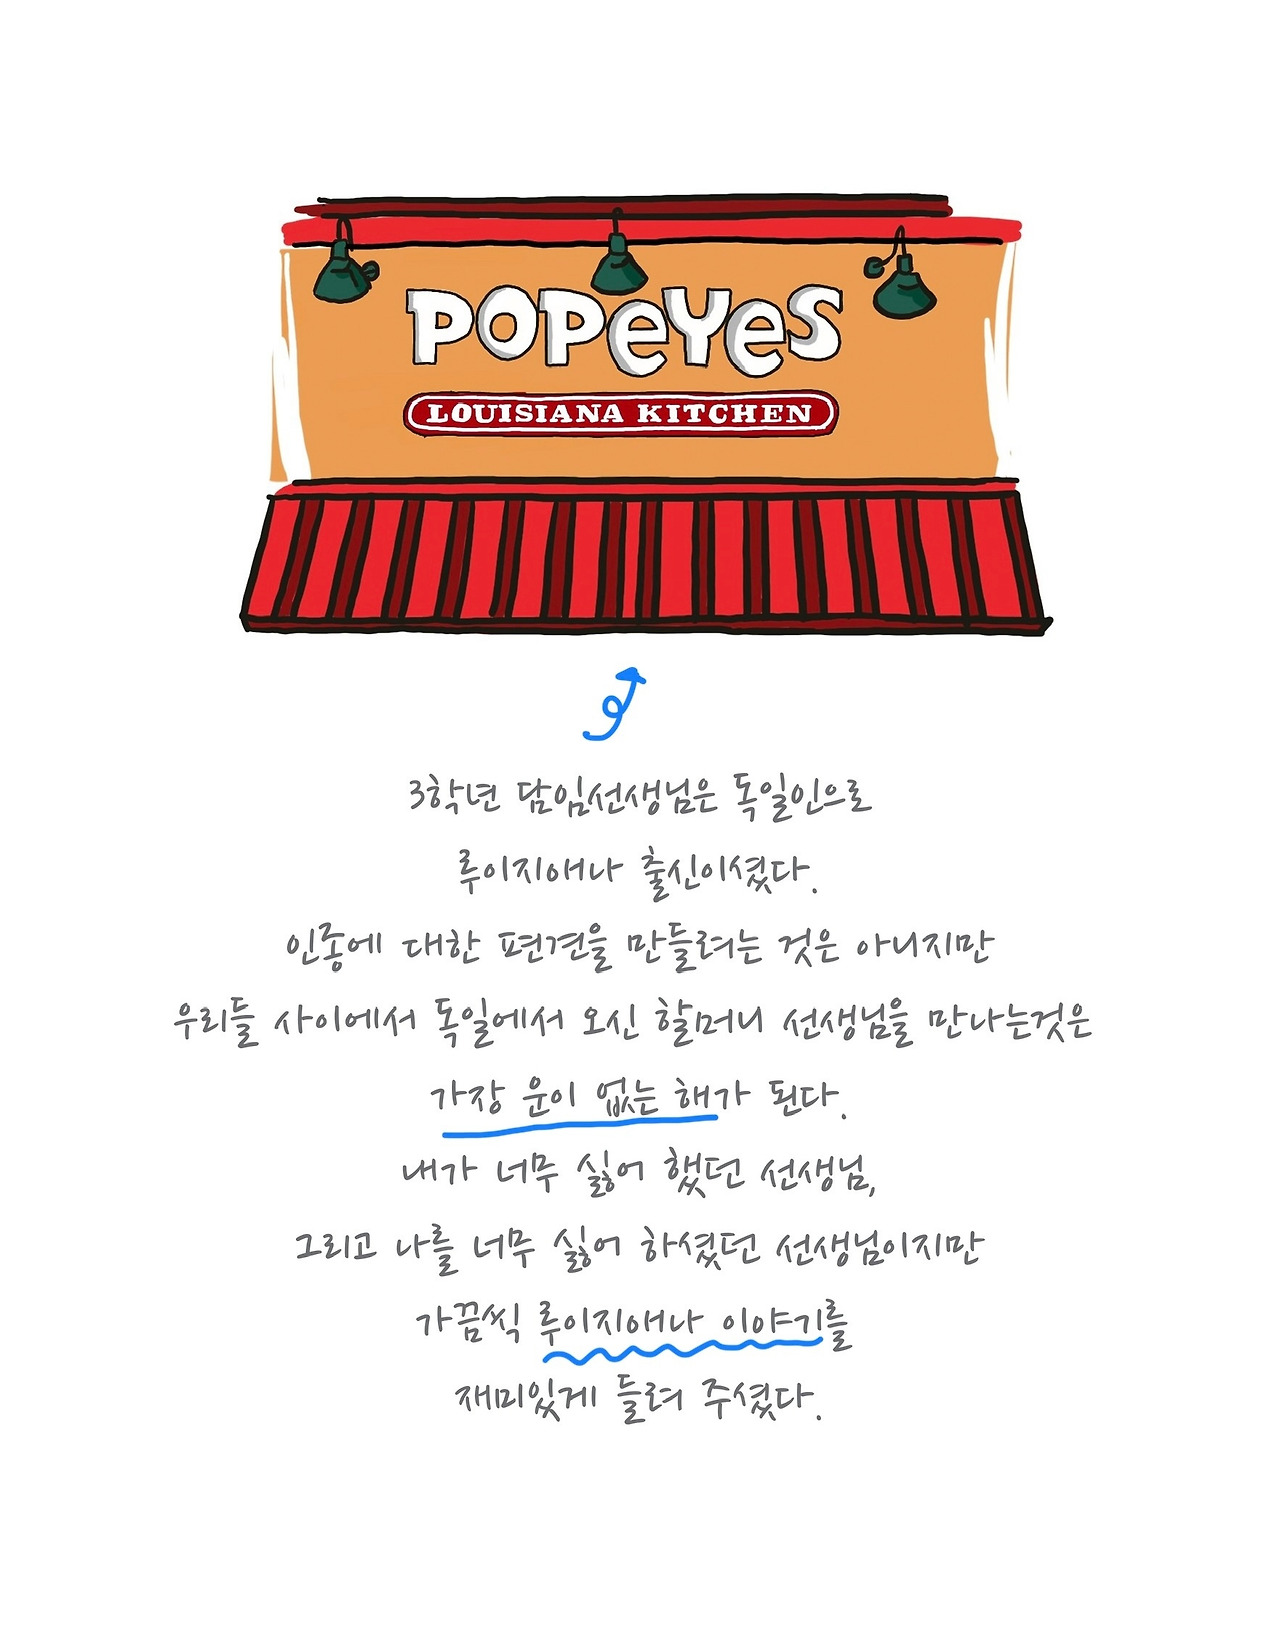 POPEYES
LOUISIANA KITCHEN
3학년 담임선생님은 독일인으로
루이지애나 출신이셨다.
인종에 대한 편견을 만들려는 것은 아니지만
우리들 사이에서 독일에서 오신 할머니 선생님을 만나는것은
가장 운이 없는 해가 된다.
내가 너무 싫어 했던 선생님,
그리고 나를 너무 싫어 하셨던 선생님이지만
가끔씩 루이지애나 이야기를
재미있게 들려 주셨다.